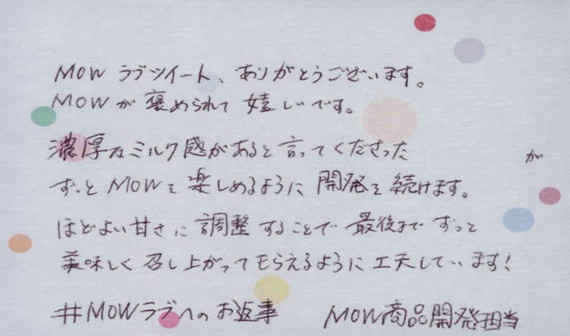 MOW ラブツイート、ありがとうございます。
MOWが褒められて嬉しいです。
濃厚なミルク感があると言ってくださった
が
ずっとMOWを楽しめるように開発を続けます。
ほどよい甘さに調整することで最後までずっと
美味しく召し上がってもらえるように工夫しています！
#MOWラブへのお返事 MOW商品開発担当